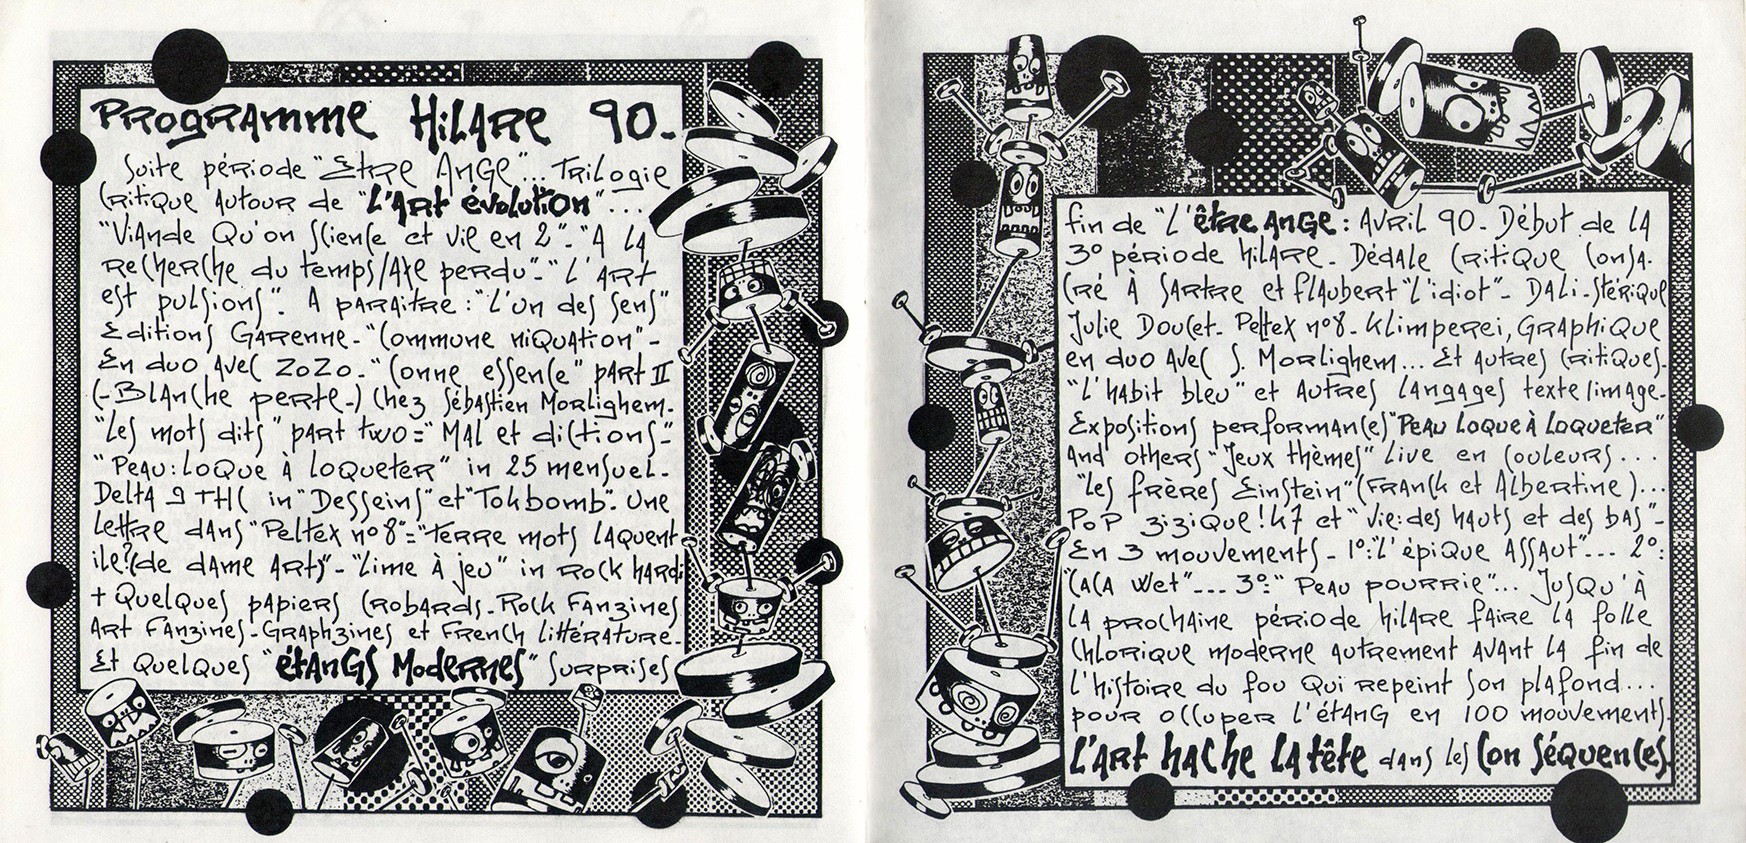 PROGRAMME HILARE 90.
Suite période "Etre Ange"... Trilogie
Critique autour de "L'Art évolution"...
"Viande Qu'on Science et vie en 2"-"A la
recherche du temps/Axe perdu"-"L'Art
est pulsions". A paraître : "L'un des sens"
Editions Garenne-"Commune niquation"-
En duo avec ZoZo-"Conne essence" part II
(-Blanche perte-) Chez Sébastien Morlighem-
"Les mots dits" part two="Mal et dictions"-
"Peau : loque à loqueter" in 25 mensuel-
Delta 9 THC in "Desseins" et "Tokbomb". Une
lettre dans "Peltex n°8"="Terre mots laquent
ile?(de dame Arts)"-"Lime à jeu" in Rock hardi
+ Quelques papiers crobards-Rock Fanzines
Art Fanzines-Graphzines et French littérature-
Et Quelques "étangs Modernes" surprises
fin de "L'être Ange : Avril 90-Début de la
3° période hilare-Dédale critique consa-
cré à Sartre et Flaubert "l'idiot"-Dali-stérique
Julie Doucet-Peltex n°8-Klimperei, Graphique
en duo avec S. Morlighem... Et autres critiques-
"L'habit bleu" et autres langages texte/image-
Expositions performances "Peau loque à loqueter"
And others "Jeux thèmes" live en couleurs...
"Les frères Einstein" (Franck et Albertine)...
Pop zizique! K7 et "Vie : des hauts et des bas"-
En 3 mouvements-1°:"L'épique Assaut"... 2°:
"Caca Wet"... 3°:"Peau pourrie"... Jusqu'à
la prochaine période hilare faire la folle
Chlorique moderne autrement avant la fin de
l'histoire du fou qui repeint son plafond...
pour occuper l'étang en 100 mouvements.
L'Art hache la tête dans les Con séquences.